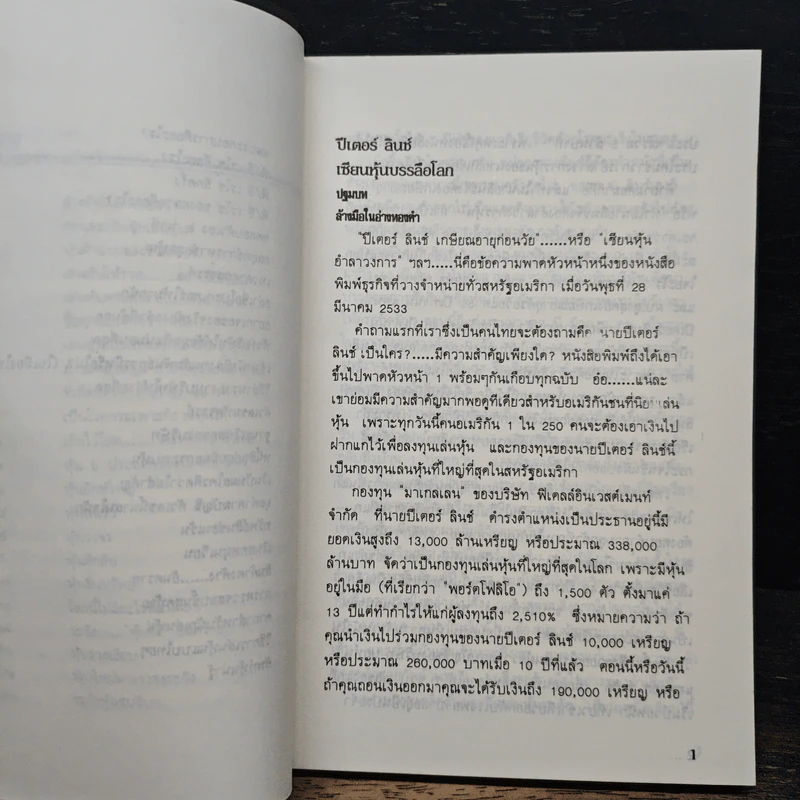 ปีเตอร์ ลินช์
เซียนหุ้นบรรลือโลก
ปฐมบท
ล้างมือในอ่างทองคำ
"ปีเตอร์ ลินช์ เกษียณอายุก่อนวัย"......หรือ "เซียนหุ้น
อำลาวงการ" ฯลฯ.....นี่คือข้อความพาดหัวหน้าหนึ่งของหนังสือ
พิมพ์ธุรกิจที่วางจำหน่ายทั่วสหรัฐอเมริกา เมื่อวันพุธที่ 28
มีนาคม 2533
คำถามแรกที่เราซึ่งเป็นคนไทยจะต้องถามคือ นายปีเตอร์
ลินช์ เป็นใคร?.....มีความสำคัญเพียงใด? หนังสือพิมพ์ถึงได้เอา
ขึ้นไปพาดหัวหน้า 1 พร้อมๆกันเกือบทุกฉบับ อ๋อ......แน่ละ
เขาย่อมมีความสำคัญมากพอดูทีเดียวสำหรับอเมริกันชนที่นิยมเล่น
หุ้น เพราะทุกวันนี้คนอเมริกัน 1 ใน 250 คนจะต้องเอาเงินไป
ฝากแกไว้เพื่อลงทุนเล่นหุ้น และกองทุนของนายปีเตอร์ ลินช์นี้
เป็นกองทุนเล่นหุ้นที่ใหญ่ที่สุดในสหรัฐอเมริกา
กองทุน "มาเกลเลน" ของบริษัท ฟิเดลลิ์อินเวสต์เมนท์
จำกัด ที่นายปีเตอร์ ลินช์ ดำรงตำแหน่งเป็นประธานอยู่นี้มี
ยอดเงินสูงถึง 13,000 ล้านเหรียญ หรือประมาณ 338,000
ล้านบาท จัดว่าเป็นกองทุนเล่นหุ้นที่ใหญ่ที่สุดในโลก เพราะมีหุ้น
อยู่ในมือ (ที่เรียกว่า "พอร์ตโฟลิโอ") ถึง 1,500 ตัว ตั้งมาแค่
13 ปีแต่ทำกำไรให้แก่ผู้ลงทุนถึง 2,510% ซึ่งหมายความว่า ถ้า
คุณนำเงินไปร่วมกองทุนของนายปีเตอร์ ลินช์ 10,000 เหรียญ
หรือประมาณ 260,000 บาทเมื่อ 10 ปีที่แล้ว ตอนนี้หรือวันนี้
ถ้าคุณถอนเงินออกมาคุณจะได้รับเงินถึง 190,000 เหรียญ หรือ
1